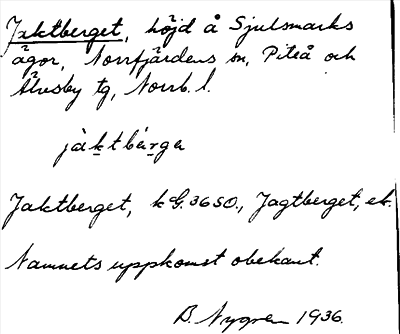 Jaktberget, höjd å Sjulsmarks
ägor, Norrfjärdens sn, Piteå och
Älvsby tg, Norrb. l.
jàktbä́rga
Jaktberget, k G. 36 SO., Jagtberget, ek.
Namnets uppkomst obekant.
B. Nygren 1936.